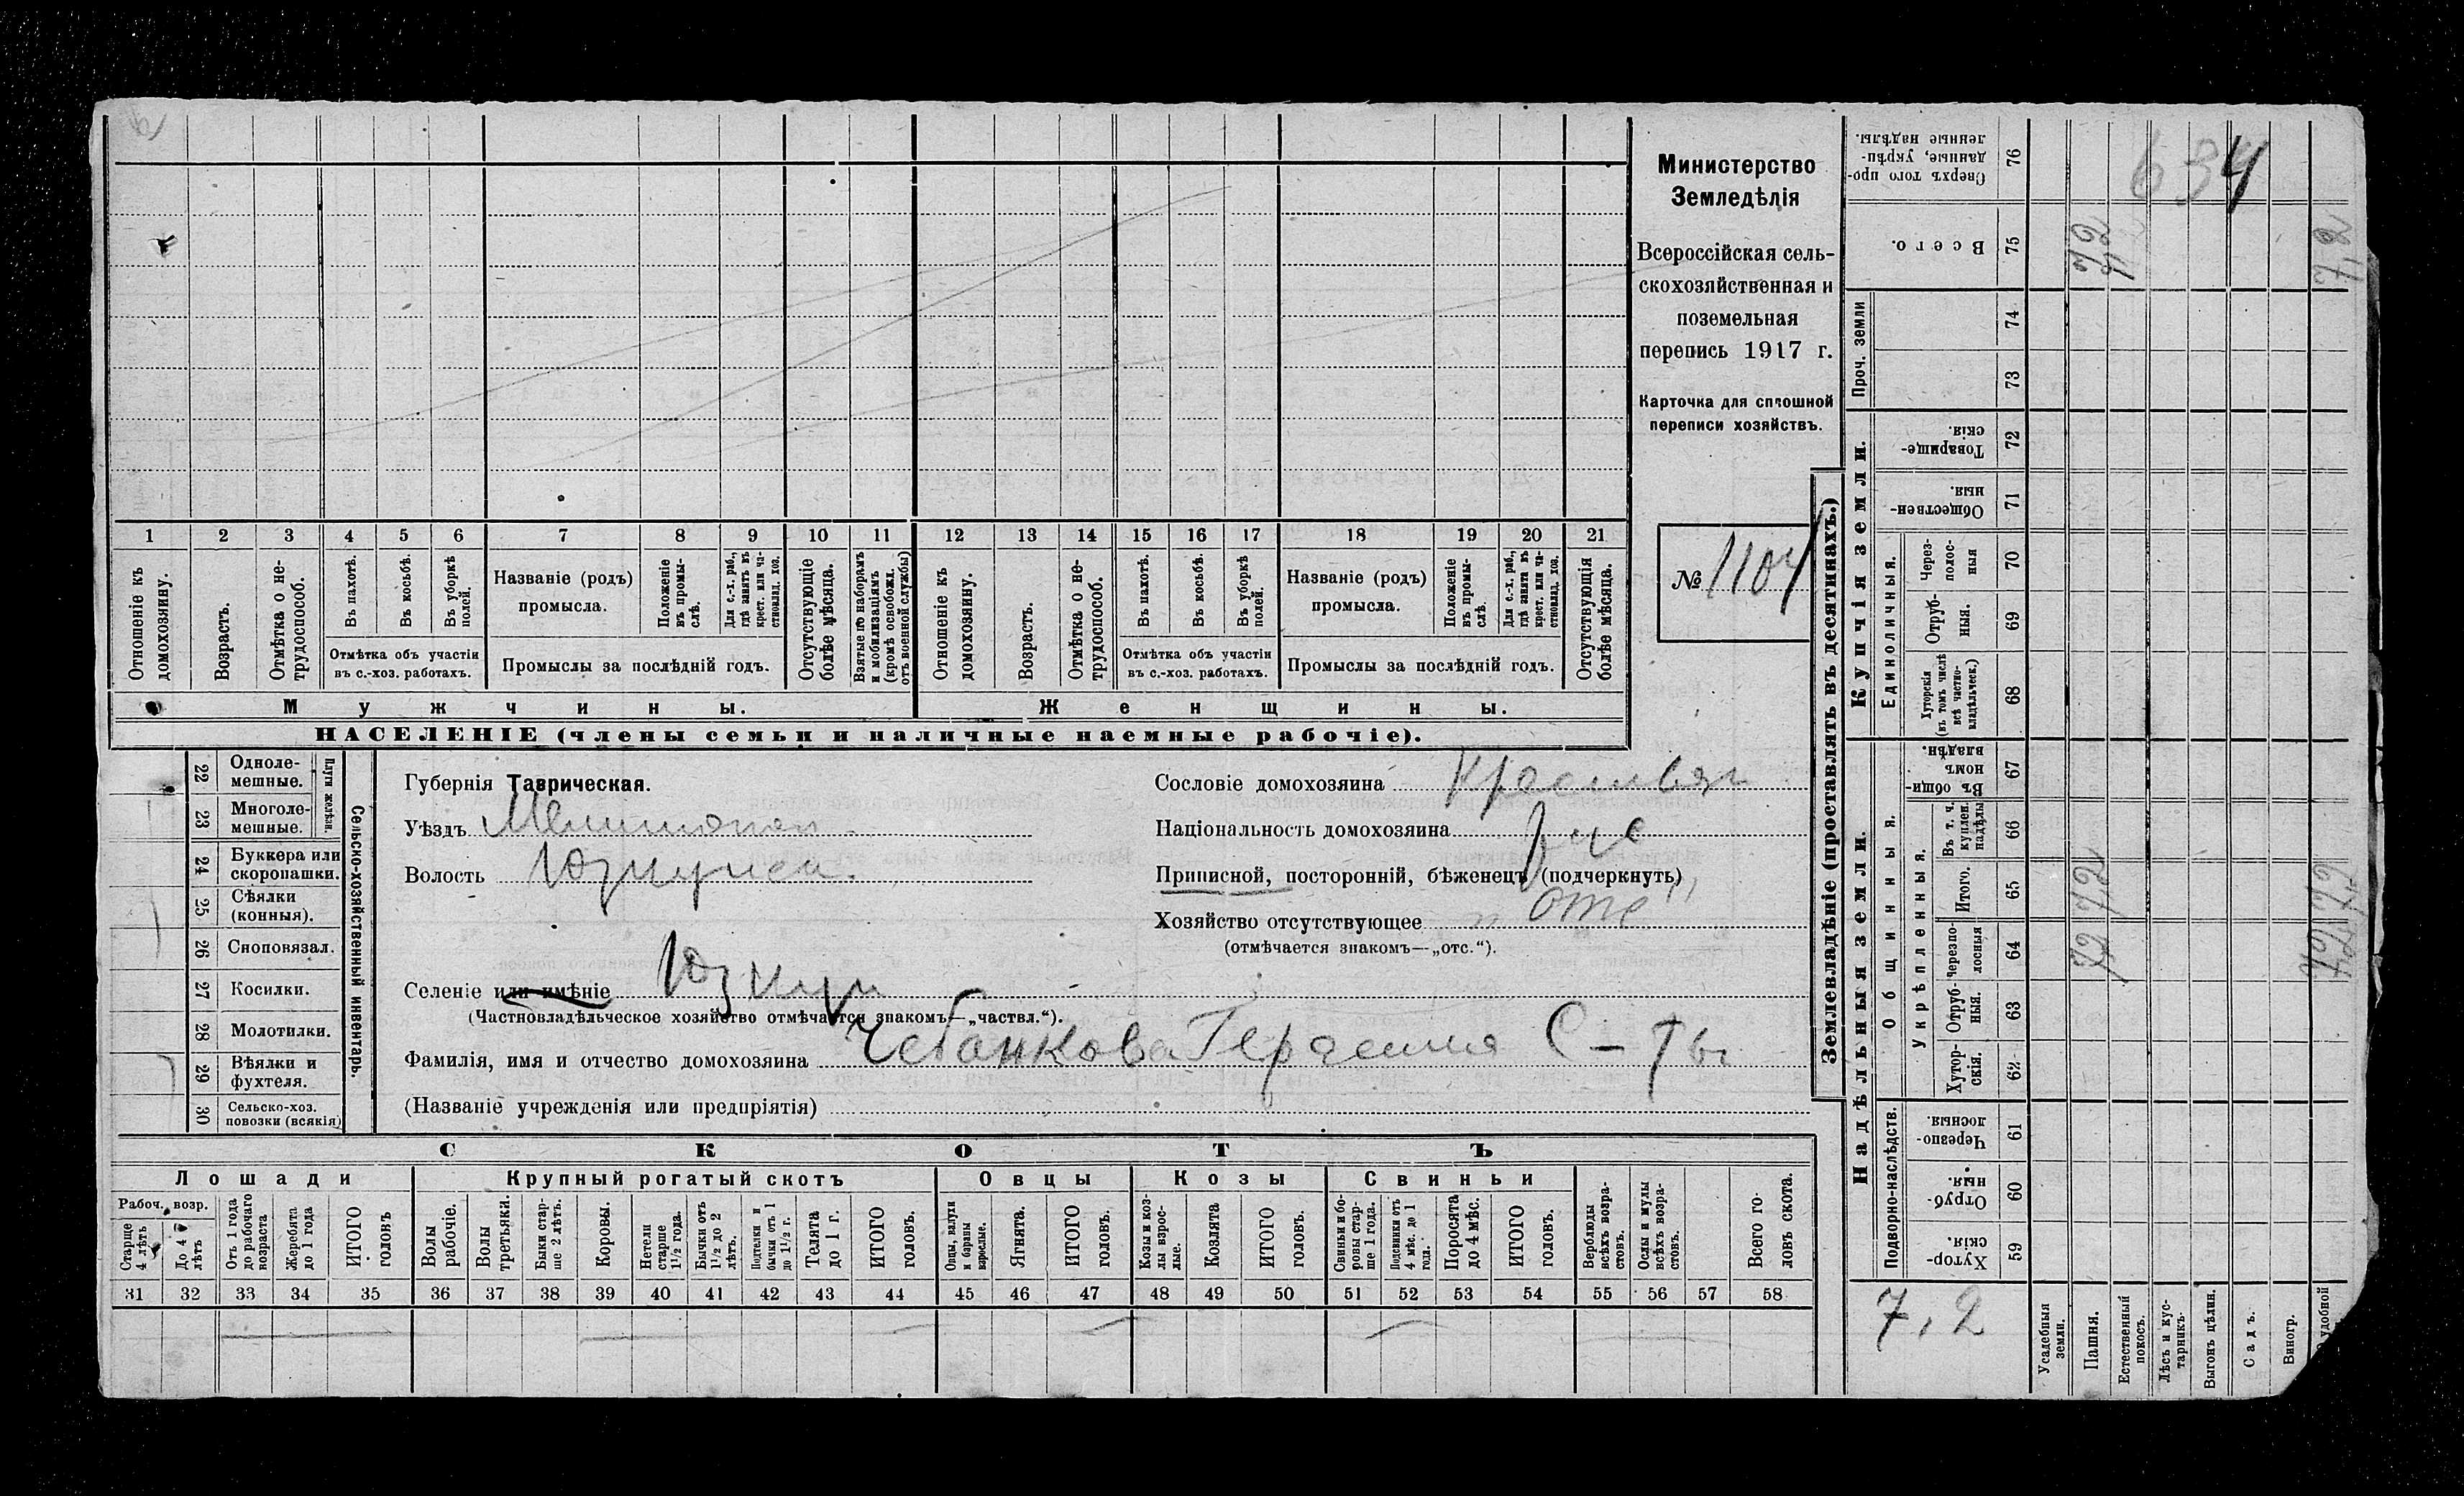 Министерство
Земледѣлія
Всероссійская сель-
скохозяйственная и
поземельная
перепись 1917 г.
Карточка для сплошной
переписи хозяйствъ.
№ 1104
1 2 3 4 5 6 7 8 9 10 11 12 13 14 15 16 17 18 19 20 21
Отношеніе къ домохозяину.
Возрастъ.
Отмѣтка о не-трудоспособ.
Въ пахотѣ.
Въ косьбѣ.
Въ уборкѣ полей.
Отмѣтка объ участіи
въ с.-хоз. работахъ.
Названіе (родъ)
промысла.
Положеніе въ промы-слѣ.
Для с.-х. раб., гдѣ занятъ въ крест. или ча-стновлад. хоз.
Промыслы за послѣдній годъ.
Отсутствующіе болѣе мѣсяца.
Взятые по наборамъ и мобилизаціямъ (кромѣ освобожд. отъ военной службы)
Отношеніе къ домохозяину.
Возрастъ.
Отмѣтка о не-трудоспособ.
Въ пахотѣ.
Въ косьбѣ.
Въ уборкѣ полей.
Отмѣтка объ участіи
въ с.-хоз. работахъ.
Названіе (родъ)
промысла.
Положеніе въ промы-слѣ.
Для с.-х. раб., гдѣ занята въ крест. или ча-стновлад. хоз.
Промыслы за послѣдній годъ.
Отсутствующія болѣе мѣсяца.
Мужчины.
Женщины.
НАСЕЛЕНІЕ (члены семьи и наличные наемные рабочіе).
22 Одноле-мешные.
23 Многоле-мешные.
Плуги желѣзн.
24 Буккера или скоропашки.
25 Сѣялки (конныя).
26 Сноповязал.
27 Косилки.
28 Молотилки.
29 Вѣялки и фухтеля.
30 Сельско-хоз. повозки (всякія)
Сельско-хозяйственный инвентарь.
Губернія Таврическая.
Уѣздъ Мелитопол
Волость Юзкуйск.
Селеніе или имѣніе Юзкуи
(Частновладѣльческое хозяйство отмѣчается знакомъ—„частвл.“).
Фамилія, имя и отчество домохозяина Чебанкова Герасима С-ты
(Названіе учрежденія или предпріятія)
Сословіе домохозяина Крестьян
Національность домохозяина Рус
Приписной, посторонній, бѣженецъ (подчеркнуть)
Хозяйство отсутствующее „Отс“
(отмѣчается знакомъ—„отс.“).
СКОТЪ
Лошади
Крупный рогатый скотъ
Овцы
Козы
Свиньи
Рабоч. возр.
Старше 4 лѣтъ
До 4 лѣтъ
Отъ 1 года до рабочаго возраста
Жеребята до 1 года
ИТОГО головъ
Волы рабочіе.
Волы третьяки.
Быки стар-ше 2 лѣтъ.
Коровы.
Нетели старше 1½ года.
Бычки отъ 1½ до 2 лѣтъ.
Подтелки и бычки отъ 1 до 1½ г.
Телята до 1 г.
ИТОГО головъ.
Овцы, валухи и бараны взрослые.
Ягнята.
ИТОГО головъ.
Козы и коз-лы взрос-лые.
Козлята
ИТОГО головъ.
Свиньи и бо-ровы стар-ше 1 года.
Подсвинки отъ 4 мѣс. до 1 года.
Поросята до 4 мѣс.
ИТОГО головъ.
Верблюды всѣхъ возра-стовъ.
Ослы и мулы всѣхъ возра-стовъ.
Всего го-ловъ скота.
31 32 33 34 35 36 37 38 39 40 41 42 43 44 45 46 47 48 49 50 51 52 53 54 55 56 57 58
Землевладѣніе (проставлять въ десятинахъ.)
Купчія земли.
Надѣльныя земли.
Сверхъ того про-данные, укрѣп-ленные надѣлы. 76
634
Всего. 75
7,2
7,2
Проч. земли
74
73
Товарище-скія. 72
Обществен-ныя. 71
Единоличныя.
Через-полос-ныя 70
Отруб-ныя. 69
Хуторскія (въ томъ числѣ всѣ частно-владѣльческ.) 68
Въ общи-номъ владѣн. 67
Общинныя.
Укрѣпленныя.
Въ т. ч. куплен. надѣлы 66
Итого. 65
7,2
7,2
Черезпо-лосныя 64
7,2
7,2
Отруб-ныя. 63
Хутор-скія. 62
Подворно-наслѣдств.
Черезпо-лосныя. 61
Отруб-ныя. 60
Хутор-скія. 59
7,2
Усадебныя земли.
Пашня.
Естественный покосъ.
Лѣсъ и кус-тарникъ.
Выгонъ цѣлин.
Садъ.
Виногр.
удобной